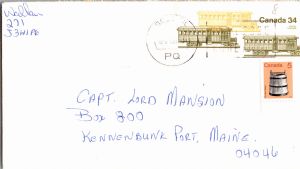 271
J3H1P6
PQ
Canada 34
Canada 5
CAPT. LORD MANSION
Box 800
KENNENBUNK PORT, MAINE.
04046